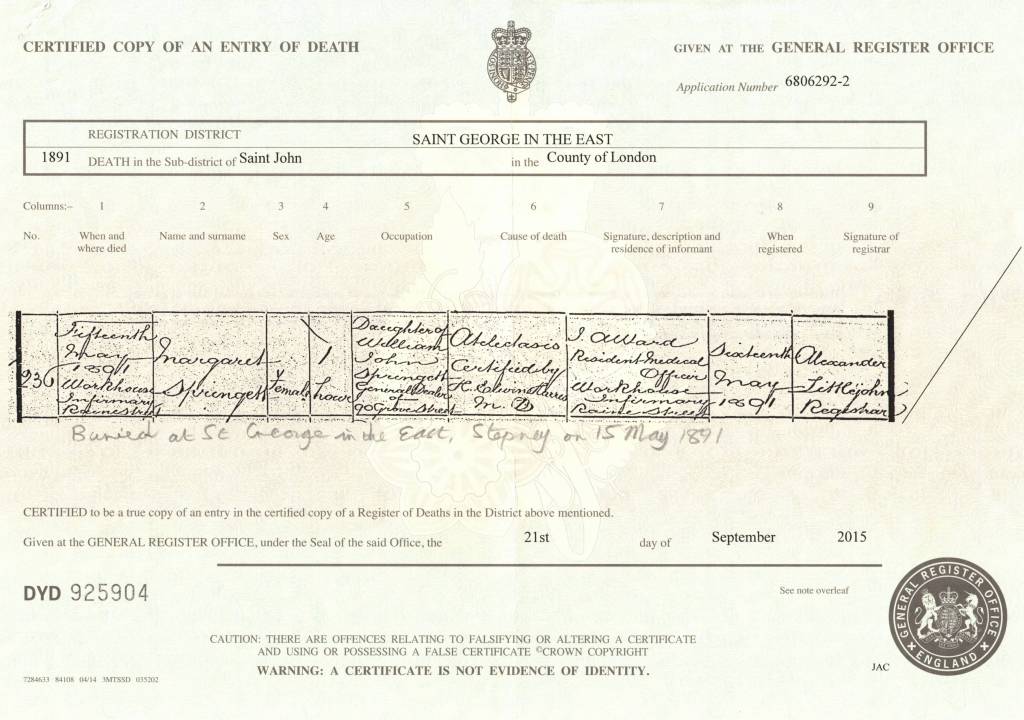 CERTIFIED COPY OF AN ENTRY OF DEATH
GIVEN AT THE GENERAL REGISTER OFFICE
Application Number 6806292-2
REGISTRATION DISTRICT SAINT GEORGE IN THE EAST
1891 DEATH in the Sub-district of Saint John in the County of London
Columns:– 1 2 3 4 5 6 7 8 9
No. When and where died Name and surname Sex Age Occupation Cause of death Signature, description and residence of informant When registered Signature of registrar
236
Fifteenth
May
1891
Workhouse
Infirmary
Raine Street
Margaret
Springett
Female
1
hour
Daughter of
William
John
Springett
General Dealer
of
90 Grove Street
Atelectasis
Certified by
M.D
Resident Medical
Officer
Workhouse
Infirmary
Raine Street
Sixteenth
May
1891
Alexander
Littlejohn
Registrar
Buried at St George in the East, Stepney on 15 May 1891
CERTIFIED to be a true copy of an entry in the certified copy of a Register of Deaths in the District above mentioned.
Given at the GENERAL REGISTER OFFICE, under the Seal of the said Office, the 21st day of September 2015
DYD 925904
See note overleaf
GENERAL REGISTER OFFICE
ENGLAND
CAUTION: THERE ARE OFFENCES RELATING TO FALSIFYING OR ALTERING A CERTIFICATE
AND USING OR POSSESSING A FALSE CERTIFICATE ©CROWN COPYRIGHT
WARNING: A CERTIFICATE IS NOT EVIDENCE OF IDENTITY.
JAC
7284633 84108 04/14 3MTSSD 035202